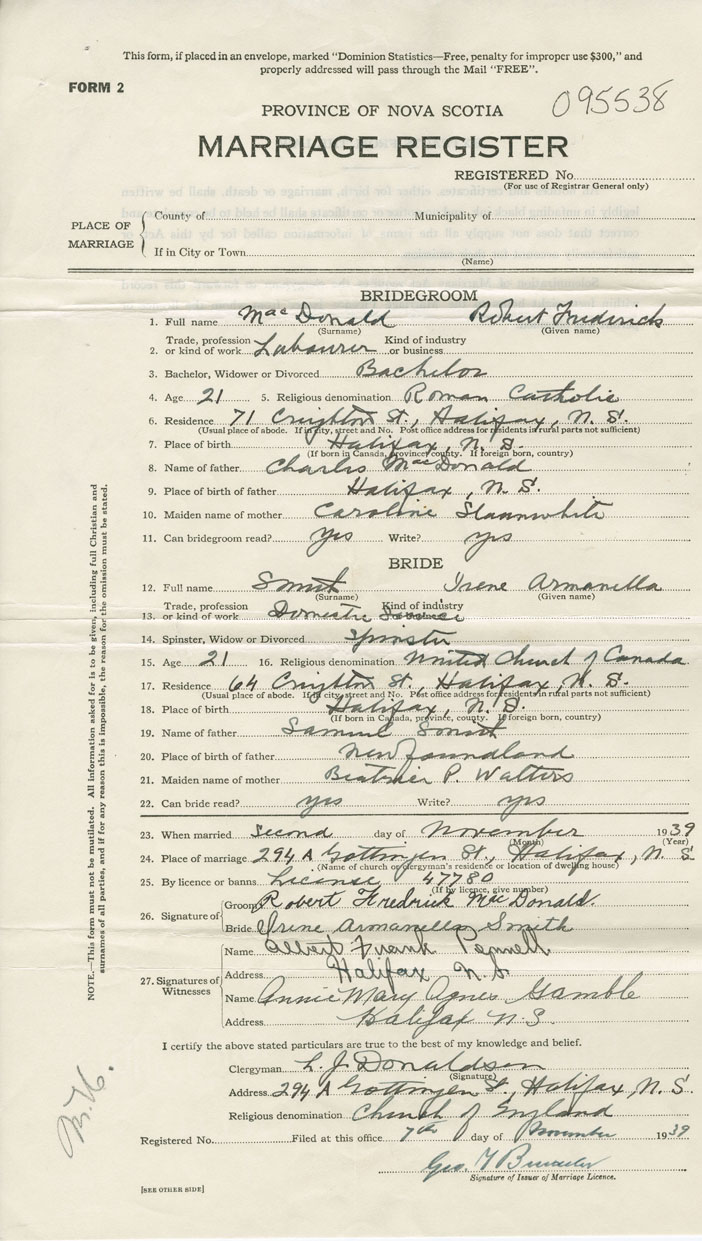 This form, if placed in an envelope, marked "Dominion Statistics—Free, penalty for improper use $300," and
properly addressed will pass through the Mail "FREE".
FORM 2
095538
PROVINCE OF NOVA SCOTIA
MARRIAGE REGISTER
REGISTERED No.
(For use of Registrar General only)
PLACE OF MARRIAGE
County of
Municipality of
If in City or Town
(Name)
BRIDEGROOM
1. Full name MacDonald Robert Frederick
(Surname) (Given name)
2. Trade, profession or kind of work Labourer Kind of industry or business
3. Bachelor, Widower or Divorced Bachelor
4. Age 21 5. Religious denomination Roman Catholic
6. Residence 71 Creighton St., Halifax, N.S.
(Usual place of abode. If in city, street and No. Post office address for residents in rural parts not sufficient)
7. Place of birth Halifax, N.S.
(If born in Canada, province, county. If foreign born, country)
8. Name of father Charles MacDonald
9. Place of birth of father Halifax, N.S.
10. Maiden name of mother Caroline Slaunwhite
11. Can bridegroom read? yes Write? yes
BRIDE
12. Full name Smith Irene Armanella
(Surname) (Given name)
13. Trade, profession or kind of work Domestic Kind of industry
14. Spinster, Widow or Divorced Spinster
15. Age 21 16. Religious denomination United Church of Canada
17. Residence 64 Creighton St., Halifax, N.S.
(Usual place of abode. If in city, street and No. Post office address for residents in rural parts not sufficient)
18. Place of birth Halifax, N.S.
(If born in Canada, province, county. If foreign born, country)
19. Name of father Samuel Smith
20. Place of birth of father Newfoundland
21. Maiden name of mother Beatrice P. Walters
22. Can bride read? yes Write? yes
23. When married Second day of November 1939
(Month) (Year)
24. Place of marriage 294A Gottingen St., Halifax, N.S.
(Name of church or clergyman's residence or location of dwelling house)
25. By licence or banns License 47780
(If by licence, give number)
26. Signature of
Groom Robert Fredrick MacDonald.
Bride Irene Armanella Smith
27. Signatures of Witnesses
Name Albert Frank Pennell
Address Halifax N.S.
Name Annie Mary Agnes Gamble
Address Halifax N.S.
I certify the above stated particulars are true to the best of my knowledge and belief.
Clergyman L. J. Donaldson
(Signature)
Address 294A Gottingen St., Halifax, N.S.
Religious denomination Church of England
Registered No. Filed at this office 7th day of November 1939
Geo.
Signature of Issuer of Marriage Licence.
[SEE OTHER SIDE]
NOTE.—This form must not be mutilated. All information asked for is to be given, including full Christian and
surnames of all parties, and if for any reason this is impossible, the reason for the omission must be stated.